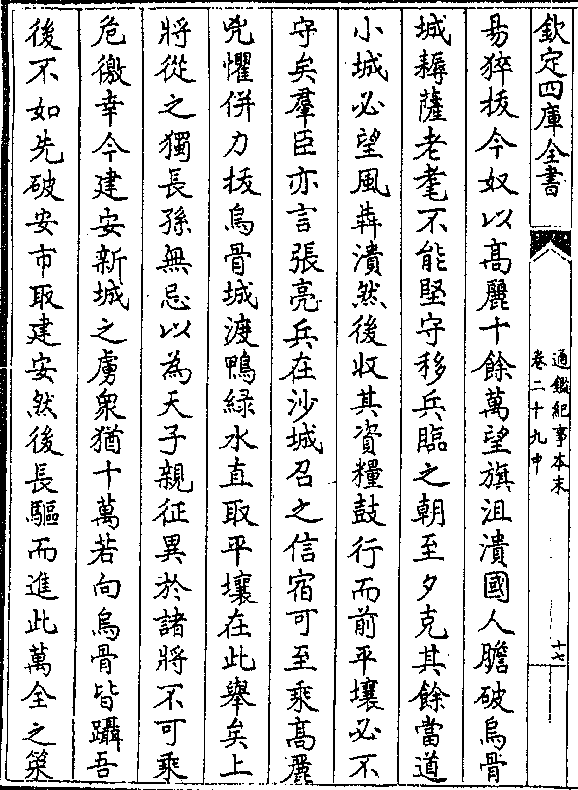 欽定四庫全書
通鑑紀事本末
卷二十九中
十七
昜猝拔今奴以高麗十餘萬望旗沮潰國人膽破烏骨
城耨薩老耄不能堅守移兵臨之朝至夕克其餘當道
小城必望風犇潰然後收其資糧鼓行而前平壤必不
守矣羣臣亦言張亮兵在沙城召之信宿可至乘高麗
兇懼併力拔烏骨城渡鴨綠水直取平壤在此舉矣上
將從之獨長孫無忌以為天子親征異於諸將不可乘
危徼幸今建安新城之虜衆猶十萬若向烏骨皆躡吾
後不如先破安市取建安然後長驅而進此萬全之䇿